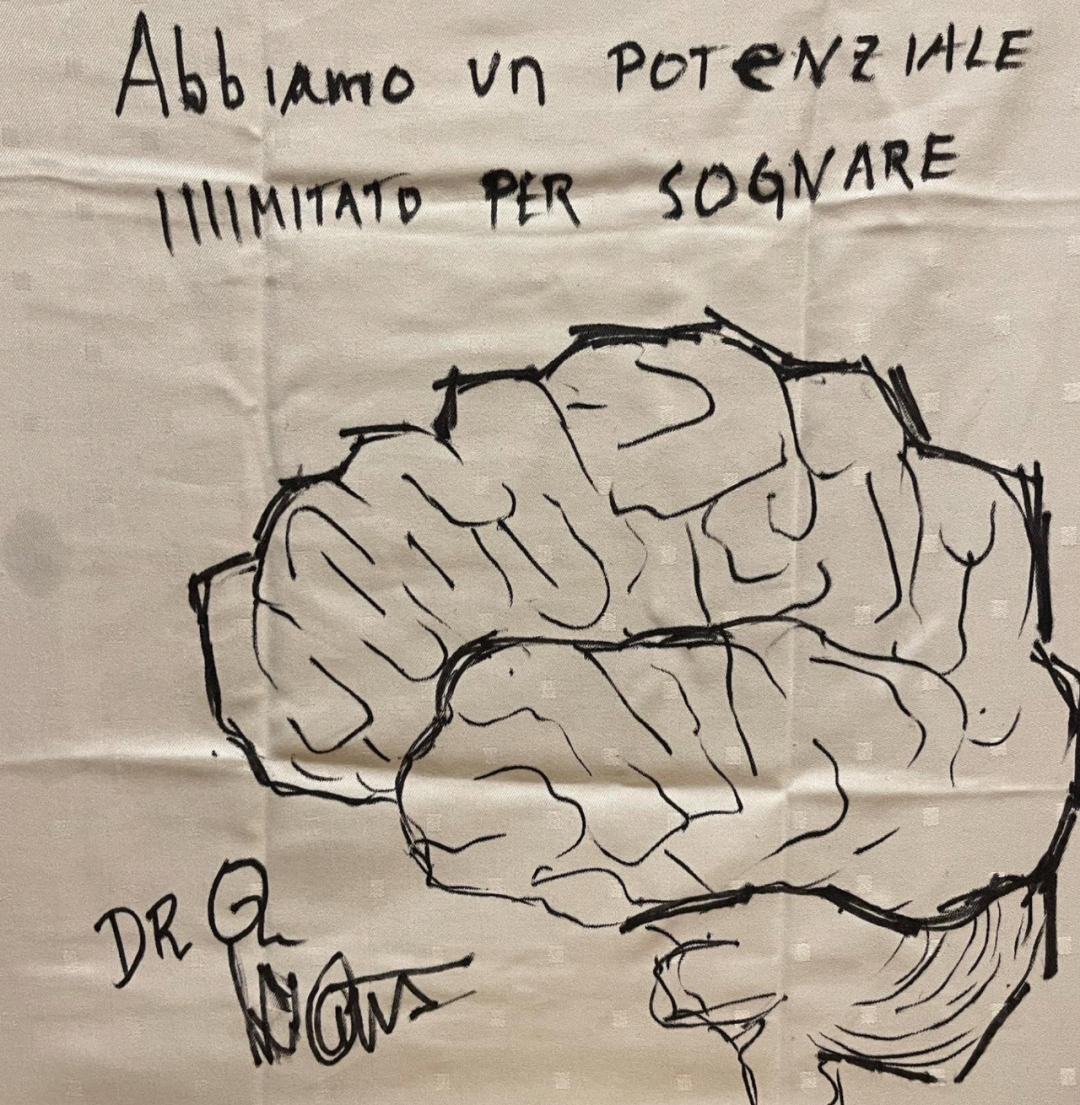 Abbiamo un POTeNZIALE
IllIMITATO PER SOGNARE
DR Q